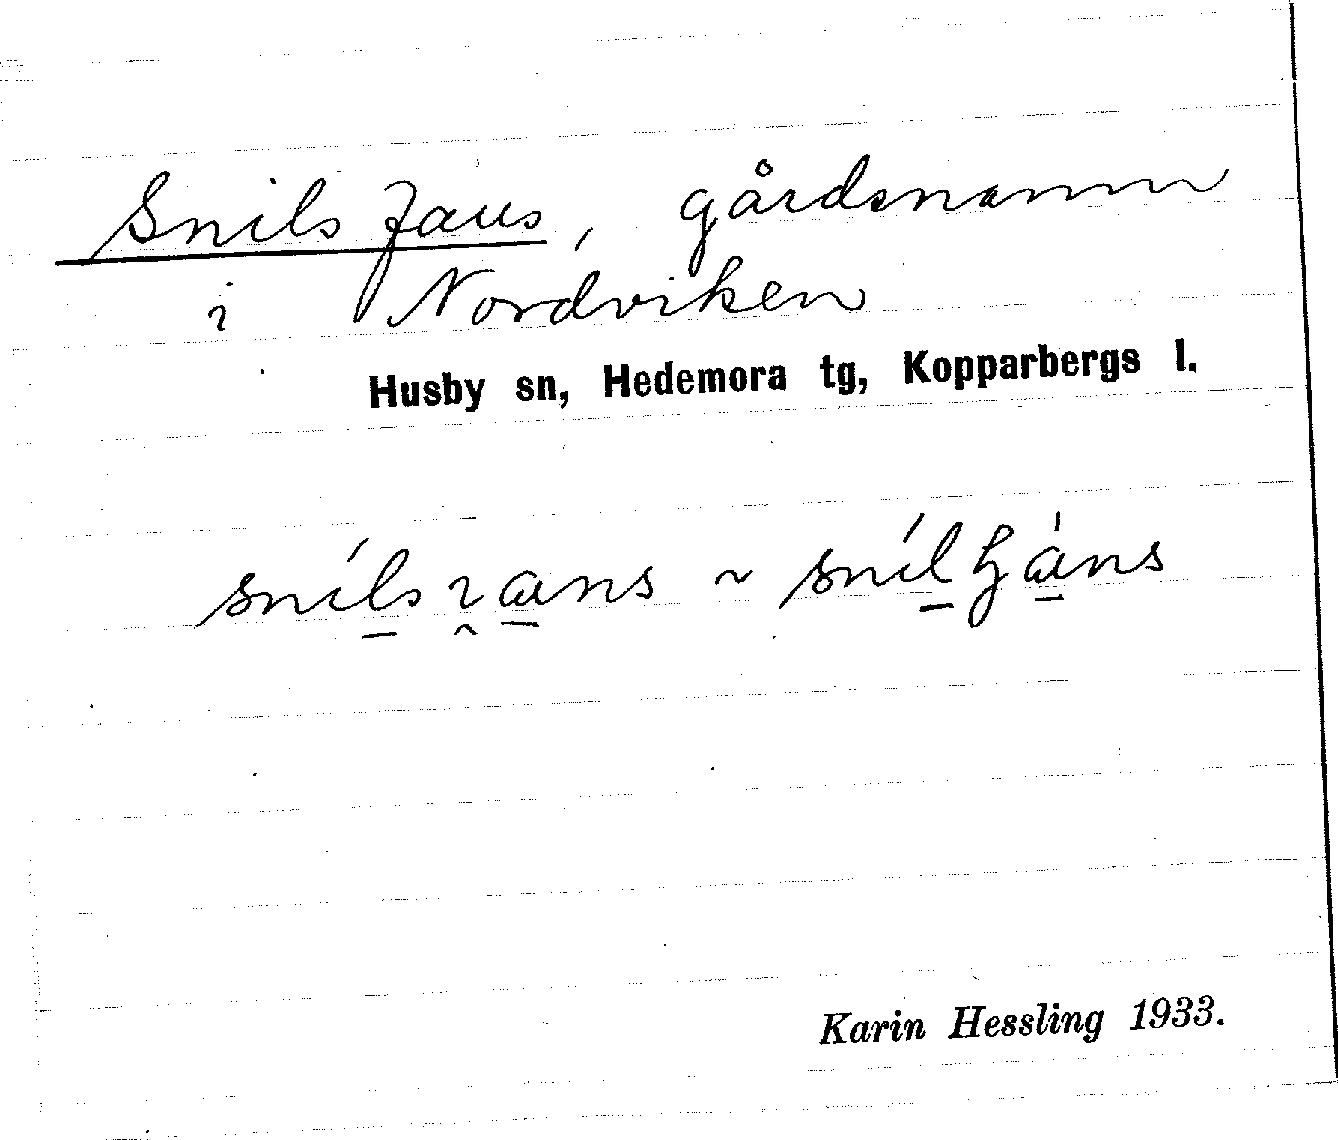 Snils Jans, gårdsnamn
i Nordviken
Husby sn, Hedemora tg, Kopparbergs l.
Karin Hessling 1933.